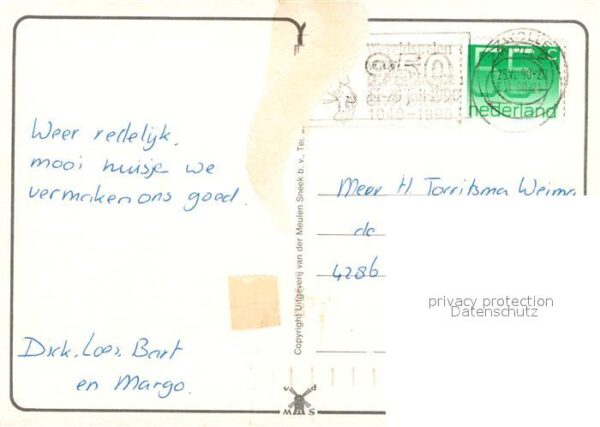 Weer redelijk,
mooi huisje we
vermaken ons goed.
Dick, Loes, Bart
en Margo.
Copyright Uitgeverij van der Meulen Sneek b.v., Tel.
v d
MAS
950
1040-1990
75 c
nederland
Meer H Torritsma
de
4286
privacy protection
Datenschutz